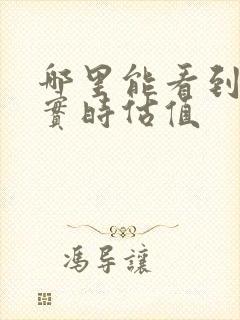 哪里能看到
實時估值
馮导讓